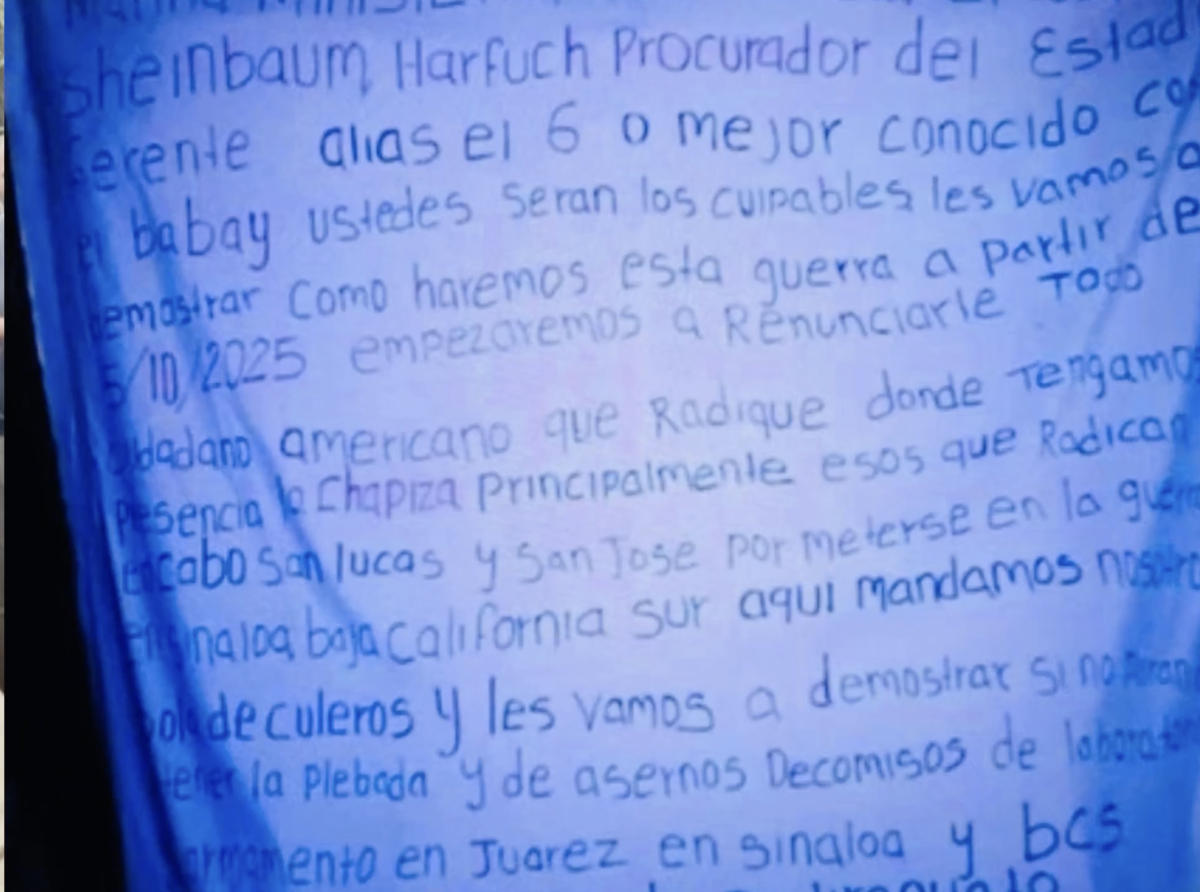 Sheinbaum Harfuch Procurador del Estad
Gerente alias el 6 o mejor conocido co
el babay ustedes seran los culpables les vamos a
demostrar como haremos esta guerra a partir de
5/10/2025 empezaremos a Renunciarle Todo
ciudadano americano que Radique donde Tengamo
presencia la Chapiza principalmente esos que Radican
en cabo san lucas y san Jose por meterse en la guerr
en sinaloa baja california sur aqui mandamos nosotro
bola de culeros y les vamos a demostrar si no
la plebada y de asernos Decomisos de
armamento en Juarez en sinaloa y bcs